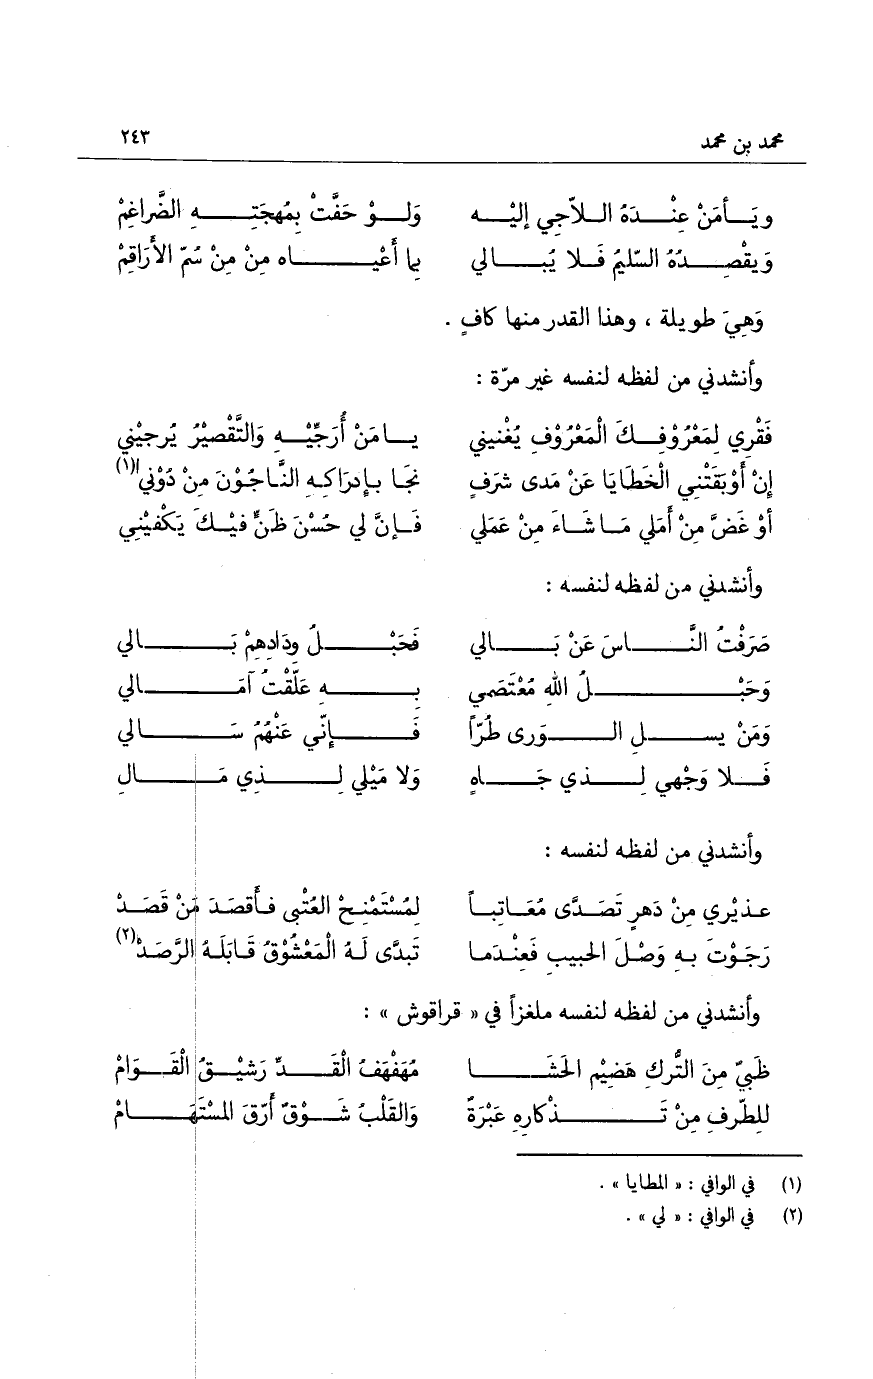 محمد بن محمد ٢٤٣
ويَأمَنْ عِنْدَهُ الـلاّجي إليْه وَلَوْ حَفَّتْ بِمُهجَتِهِ الضَّراغِمْ
وَيقْصِدُهُ السّليمُ فَلا يُبَالي بما أَعْيَاه مِنْ مِنْ سُمّ الأَرَاقِمْ
وَهِيَ طويلة ، وهذا القدر منها كافٍ .
وأنشدني من لفظه لنفسه غير مرّة :
فَقْري لِمَعْرُوْفِكَ الْمَعْرُوْفِ يُغْنيني يا مَنْ أُرَجِّيْهِ وَالتَّقْصِيْرُ يُرجِيْني
إنْ أوْبَقَتْني الْخَطَايَا عَنْ مَدى شرَفٍ نجَا بإدرَاكِهِ النَّاجُوْنَ مِنْ دُوْني(١)
أوْ غَضَّ مِنْ أمَلي مَا شَاءَ مِنْ عَمَلي فَإنَّ لي حُسْنَ ظَنٍّ فيْكَ يَكْفيْني
وأنشدني من لفظه لنفسه :
صَرَفْتُ النَّاسَ عَنْ بَالي فَحَبْلُ ودَادِهِمْ بَالي
وَحَبْلُ الله مُعْتَصَمي بِهِ عَلَّقْتُ آمَالي
وَمَنْ يسلِ الوَرى طُرّاً فَإنّي عَنْهُمُ سَالي
فَلا وَجْهي لِذي جَاهٍ وَلا مَيْلي لِذِي مَالِ
وأنشدني من لفظه لنفسه :
عذيْري مِنْ دَهرٍ تَصَدَّى مُعَاتِباً لِمُسْتَمْنِحْ العُتْبى فأَقصَدَ مَنْ قَصَدْ
رَجَوْتَ بهِ وَصْلَ الحبيبِ فَعِنْدَما تبدَّى لَهُ الْمَعْشُوْقُ قَابَلَهُ الرَّصَدْ(٢)
وأنشدني من لفظه لنفسه ملغزاً في « قراقوش » :
ظَبيٌ مِنَ التُّركِ هَضِيْم الحَشَا مُهَفْهَفُ الْقَدِّ رَشيْقُ الْقَوَامْ
للِطّرفِ مِنْ تَذْكارِهِ عَبْرَةٌ وَالقَلْبُ شَوْقٌ أرَّقَ المُسْتَهَامْ
(١) في الوافي : « المطايا » .
(٢) في الوافي : « لي » .